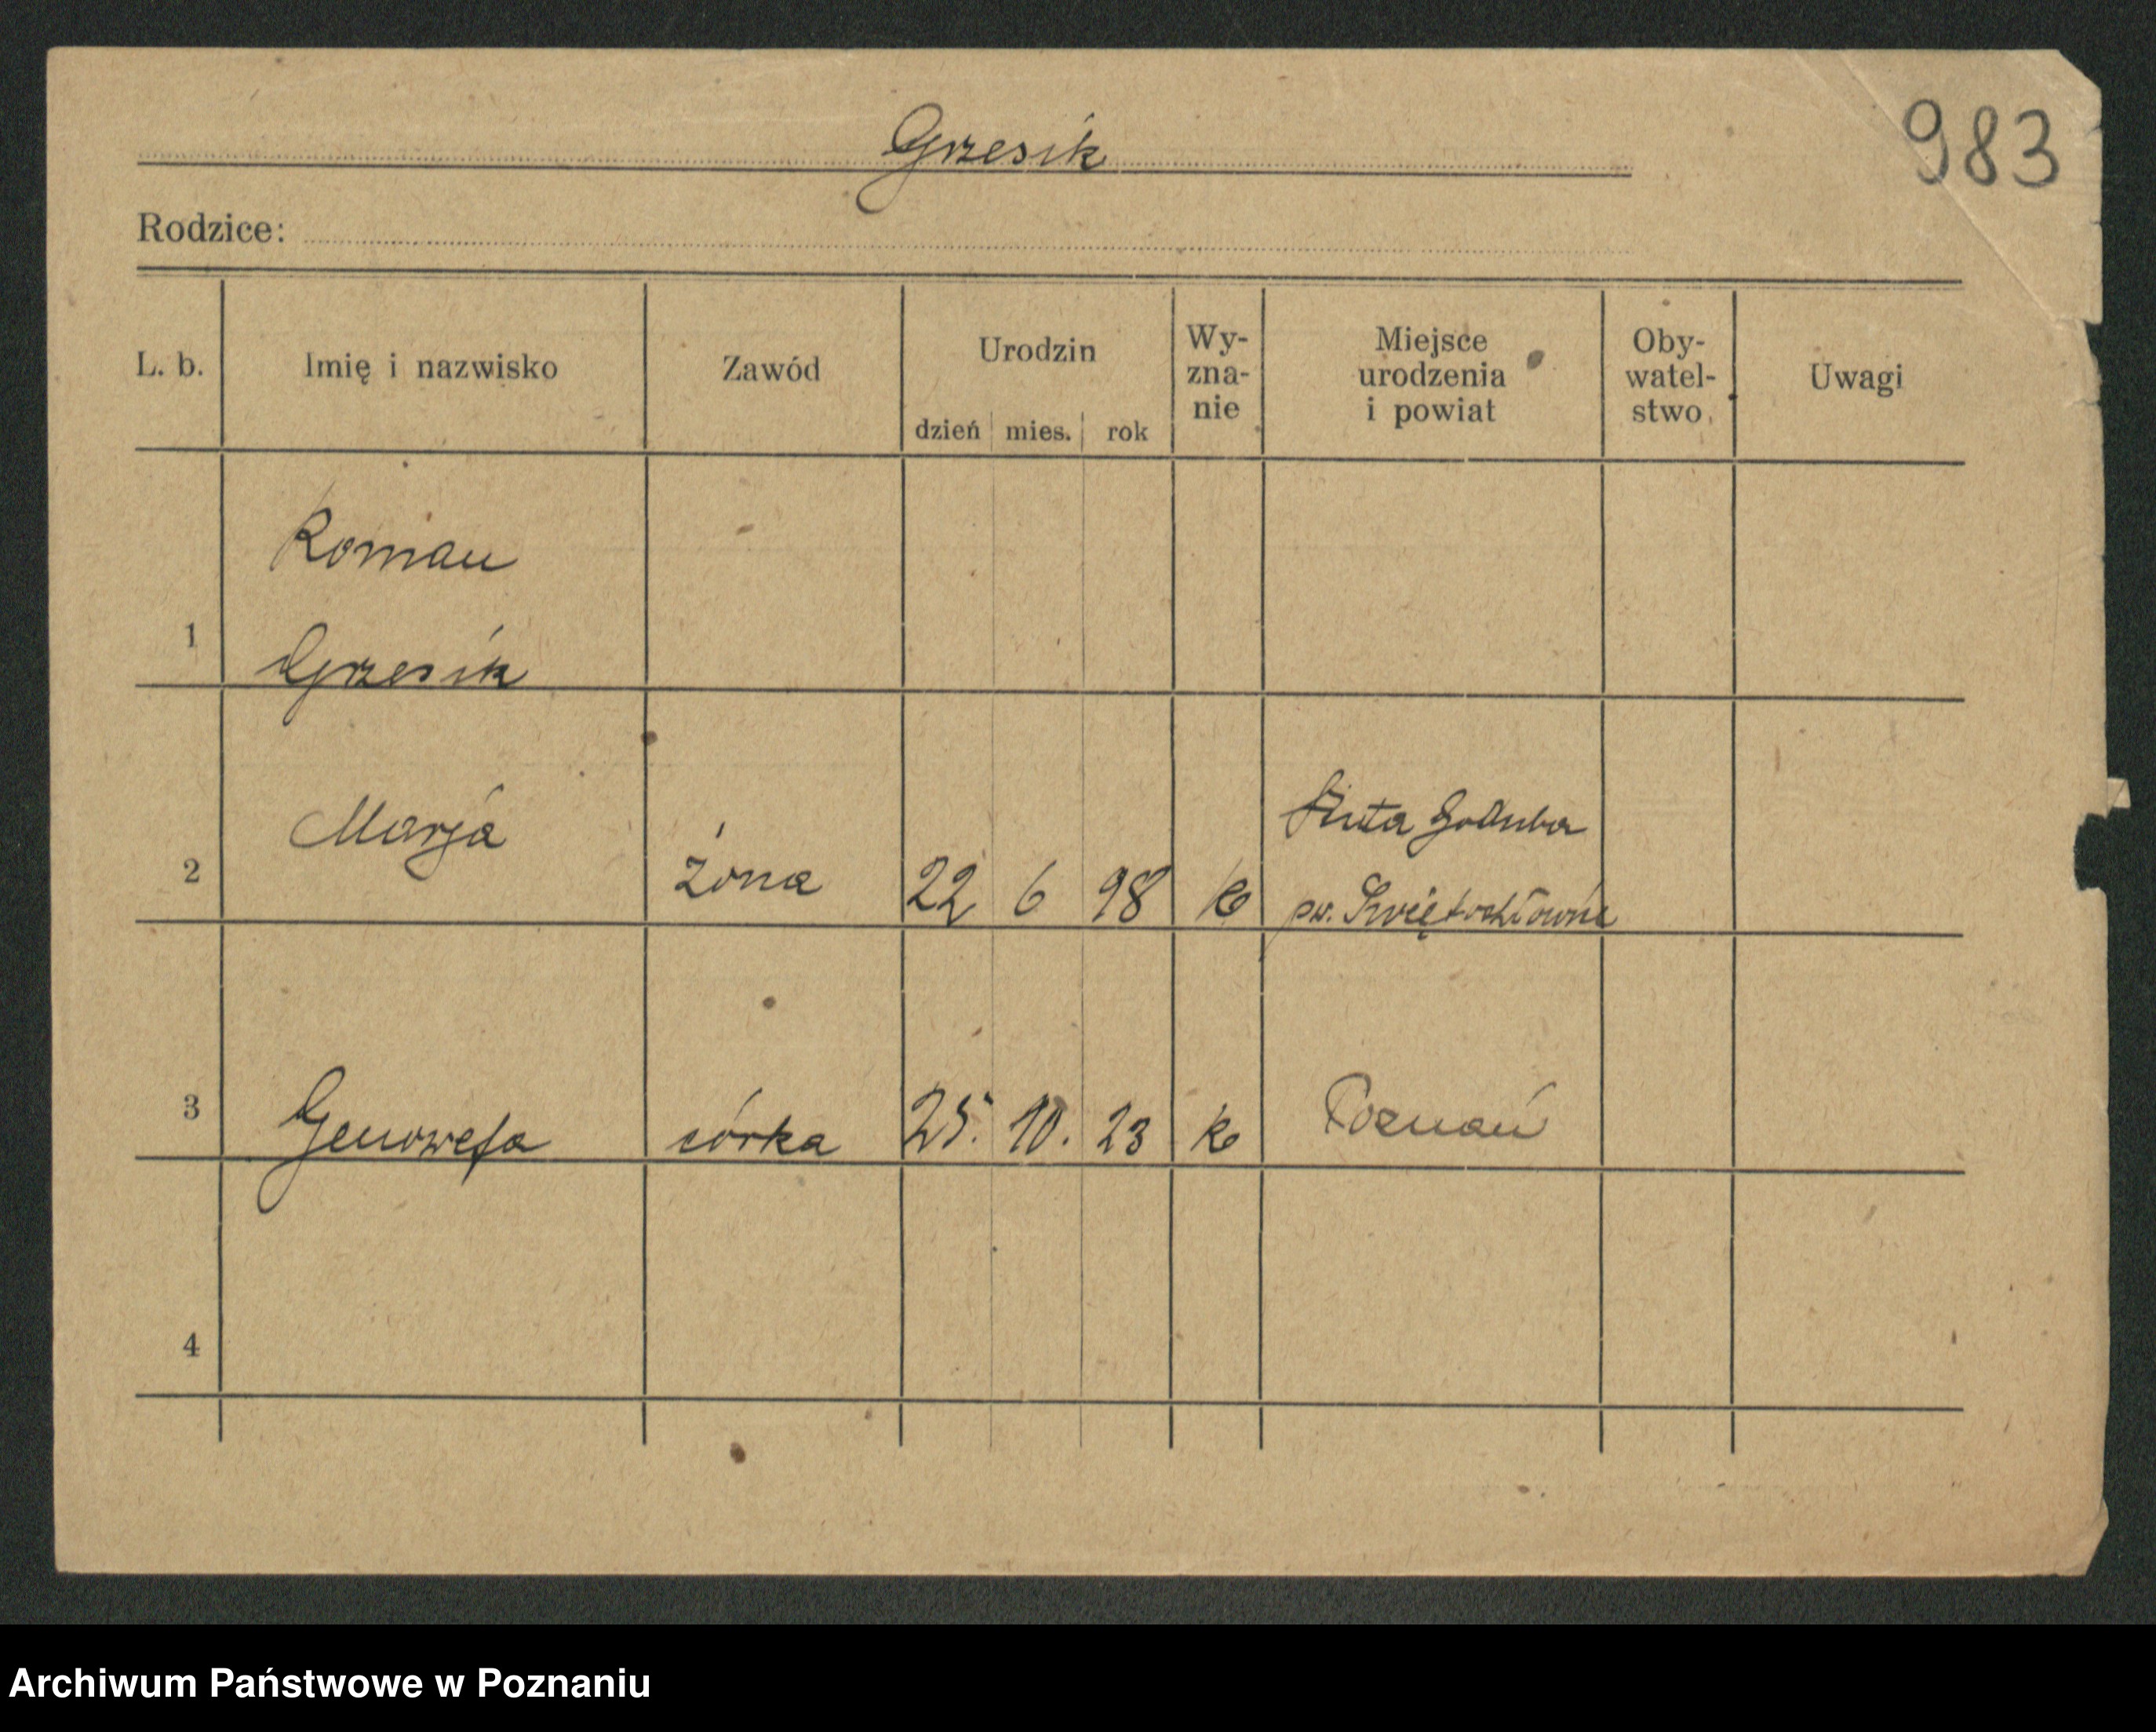 Grzesik
983
Rodzice:
L. b. Imię i nazwisko Zawód Urodzin Wy- Miejsce Oby- Uwagi
zna- urodzenia watel-
nie i powiat stwo
dzień mies. rok
Roman
1 Grzesik
Marja Huta Gołuba
2 żona 22 6 98 k pw. Świętochłowice
3 Genowefa córka 25. 10. 23 k Poznań
4
Archiwum Państwowe w Poznaniu